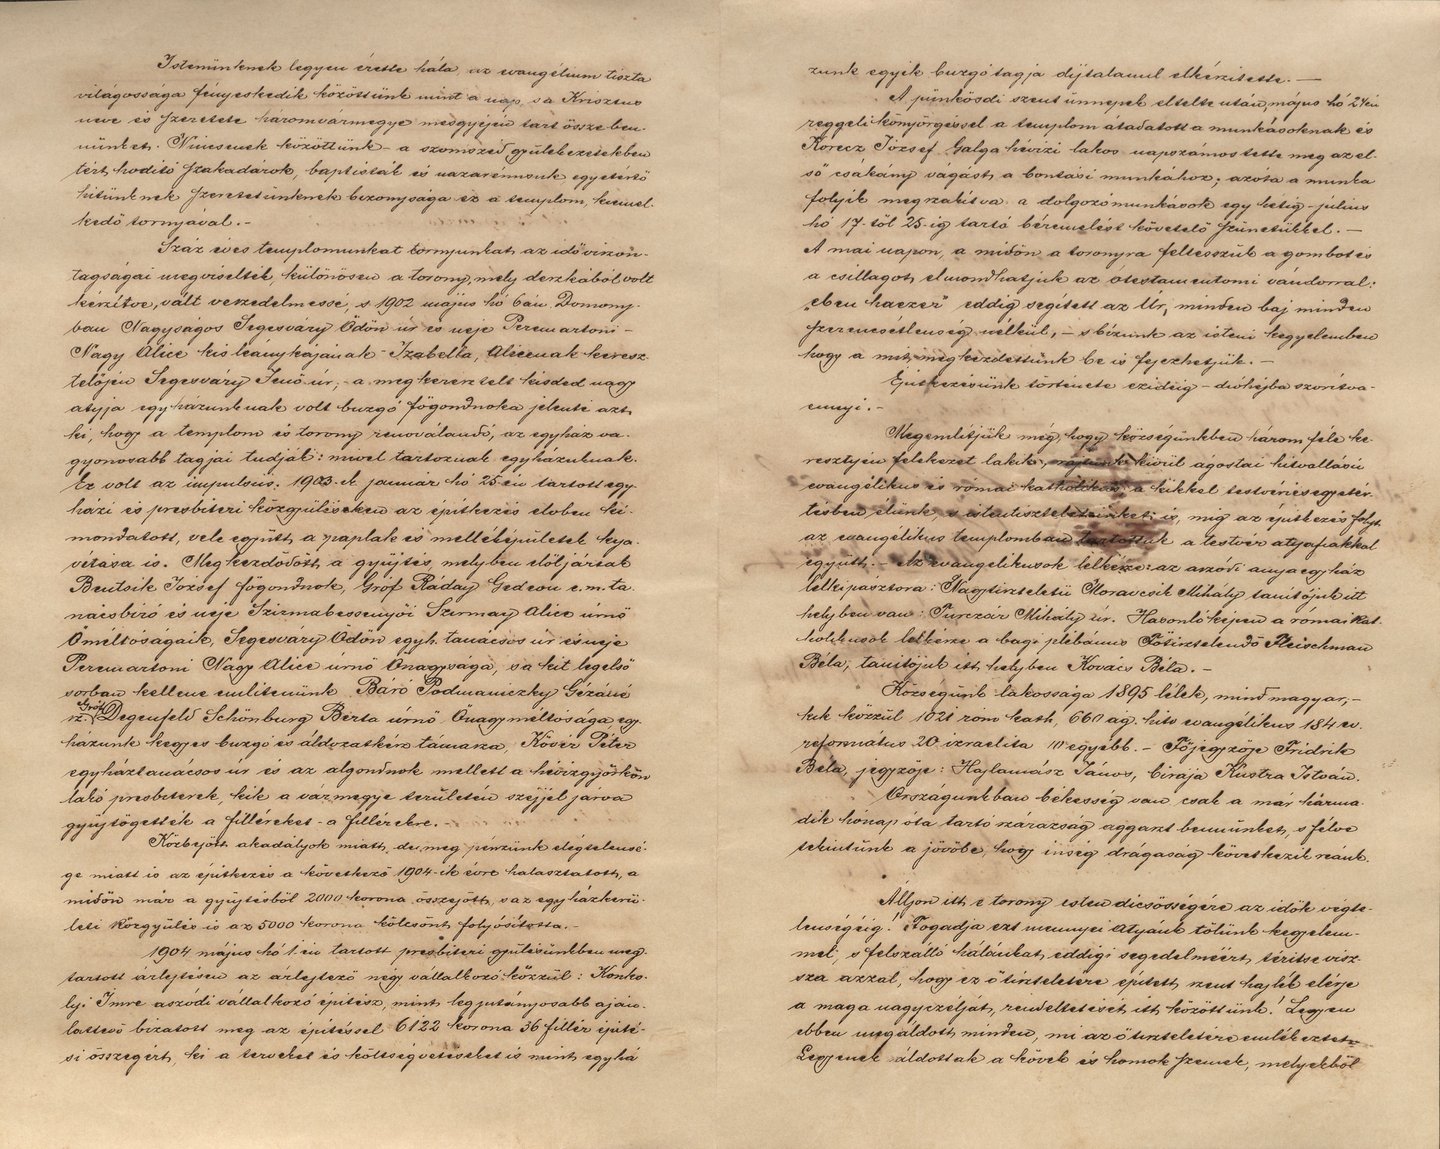 Istenünknek legyen érette hála, az evangélium tiszta
világossága fényeskedik közöttünk mint a nap, s a Krisztus
neve és szeretete háromvármegye mesgyéjén tart össze ben-
nünket. Nincsenek közöttünk – a szomszéd gyülekezetekben
tért hodító szakadárok, baptisták és nazarénusok egyetértő
hitünknek szeretetünknek bizonysága ez a templom, kiemel-
kedő tornyával. –
Száz éves templomunkat tornyunkat, az idő viszon-
tagságai megviselték, különösen a torony, mely deszkából volt
készítve, vált veszedelmessé, s 1902 május hó 6án Domony-
ban Nagyságos Segesváry Ödön úr és neje Peremartoni –
Nagy Alice kis leánykájának – Izabella, Alicenak keresz-
telőjén Segesváry Jenő úr, – a megkeresztelt kisded nagy
atyja egyházunknak volt buzgó főgondnoka jelenti azt
ki, hogy a templom és torony renoválandó, az egyház va-
gyonosabb tagjai tudják: mivel tartoznak egyházuknak.
Ez volt az impulsus. 1903-ik január hó 25-én tartott egy-
házi és presbiteri közgyűléseken az építkezés elvben ki-
mondatott, vele együtt a paplak és melléképületek kija-
vítása is. Megkezdődött a gyűjtés, melyben elöljártak
Bentsik József főgondnok, Gróf Ráday Gedeon e. m. ta-
nácsbíró és neje Szirmabessenyői Szirmay Alice úrnő
Őméltóságaik, Segesváry Ödön egyh. tanácsos úr és neje
Peremartoni Nagy Alice úrnő Őnagysága, s a kit legelső
sorban kellene említenünk Báró Podmaniczky Gézáné
sz. Gróf Degenfeld Schönburg Berta úrnő Őnagyméltósága egy-
házunk kegyes buzgó és áldozatkész támasza, Kövér Péter
egyháztanácsos úr és az algondnok mellett a hévizgyörkön
lakó presbiterek, kik a vármegye területén széjjel járva
gyűjtögették a filléreket – a fillérekre. –
Közbejött akadályok miatt, de meg pénzünk elégtelensé-
ge miatt is az építkezés a következő 1904-ik évre halasztatott, a
midőn már a gyűjtésből 2000 korona összejött, s az egyházkerü-
leti közgyűlés is az 5000 korona kölcsönt folyósította. –
1904 május hó 1-én tartott presbiteri gyűlésünkben meg-
tartott árlejtésen az árlejtező négy vállalkozó közzül: Konko-
lyi Imre aszódi vállalkozó építész, mint legjutányosabb aján-
lattevő bizatott meg az építéssel 6122 korona 36 fillér építé-
si összegért, ki a terveket és költségvetéseket is mint egyhá
zunk egyik buzgó tagja díjtalanul elkészitette. –
A pünkösdi szent ünnepek eltelte után, május hó 24én
reggeli könyörgéssel a templom átadatott a munkásoknak és
Korecz József Galga hévizi lakos napszámos tette meg az el-
ső csákány vágást, a bontási munkához; azóta a munka
folyik megszakítva a dolgozómunkások egy hétig – július
hó 17-től 25-ig tartó béremelést követelő szünetükkel. –
A mai napon, a midőn a toronyra feltesszük a gombot és
a csillagot, elmondhatjuk az ótestamentomi vándorral:
„eben haezer" eddig segített az Úr, minden baj minden
szerencsétlenség nélkül, – s bízunk az isteni kegyelemben
hogy a mit megkezdettünk be is fejezhetjük. –
Építkezésünk története ezidéig – dióhéjba szorítva –
ennyi. –
Megemlítjük még, hogy községünkben három féle ke-
resztyén felekezet lakik, rajtunk kívül ágostai hitvallású
evangélikus és római katholikus, a kikkel testvéries egyetér-
tésben élünk, s istentiszteleteinket is, míg az építkezés folyt
az evangélikus templomban tartottuk a testvér atyafiakkal
együtt. Az evangélikusok lelkésze: az aszódi anyaegyház
lelkipásztora: Nagytiszteletü Moravcsik Mihály tanítójuk itt
helyben van: Purczár Mihály úr. Hasonlóképen a római kat-
holikusok lelkésze a bagi plébánus Főtisztelendő Fleischman
Béla, tanítójuk itt helyben Kovács Béla. –
Községünk lakossága 1895 lélek, mind magyar, –
kik közzül 1021 róm kath, 660 ág. hitv evangélikus 184 ev.
református 20 izraelita 10 egyébb. – Főjegyzője Fridrik
Béla, jegyzője: Hajlamász János, bírája Kustra István.
Országunkban békesség van csak a már harma-
dik hónap óta tartó szárazság aggaszt bennünket, s félve
tekintünk a jövőbe, hogy inség drágaság következik reánk.
Álljon itt e torony isten dicsősségére az idők végte-
lenségéig! Fogadja ezt mennyei Atyánk tőlünk kegyelem-
mel, s felszálló hálánkat, eddigi segedelméért, térítse visz-
sza azzal, hogy ez ő tiszteletére épített, szent hajlék elérje
a maga nagy czélját, rendeltetését itt közöttünk! Legyen
ebben megáldott minden, mi az ő tiszteletére emlékeztet –
Legyenek áldottak a kövek és homok szemek, melyekből